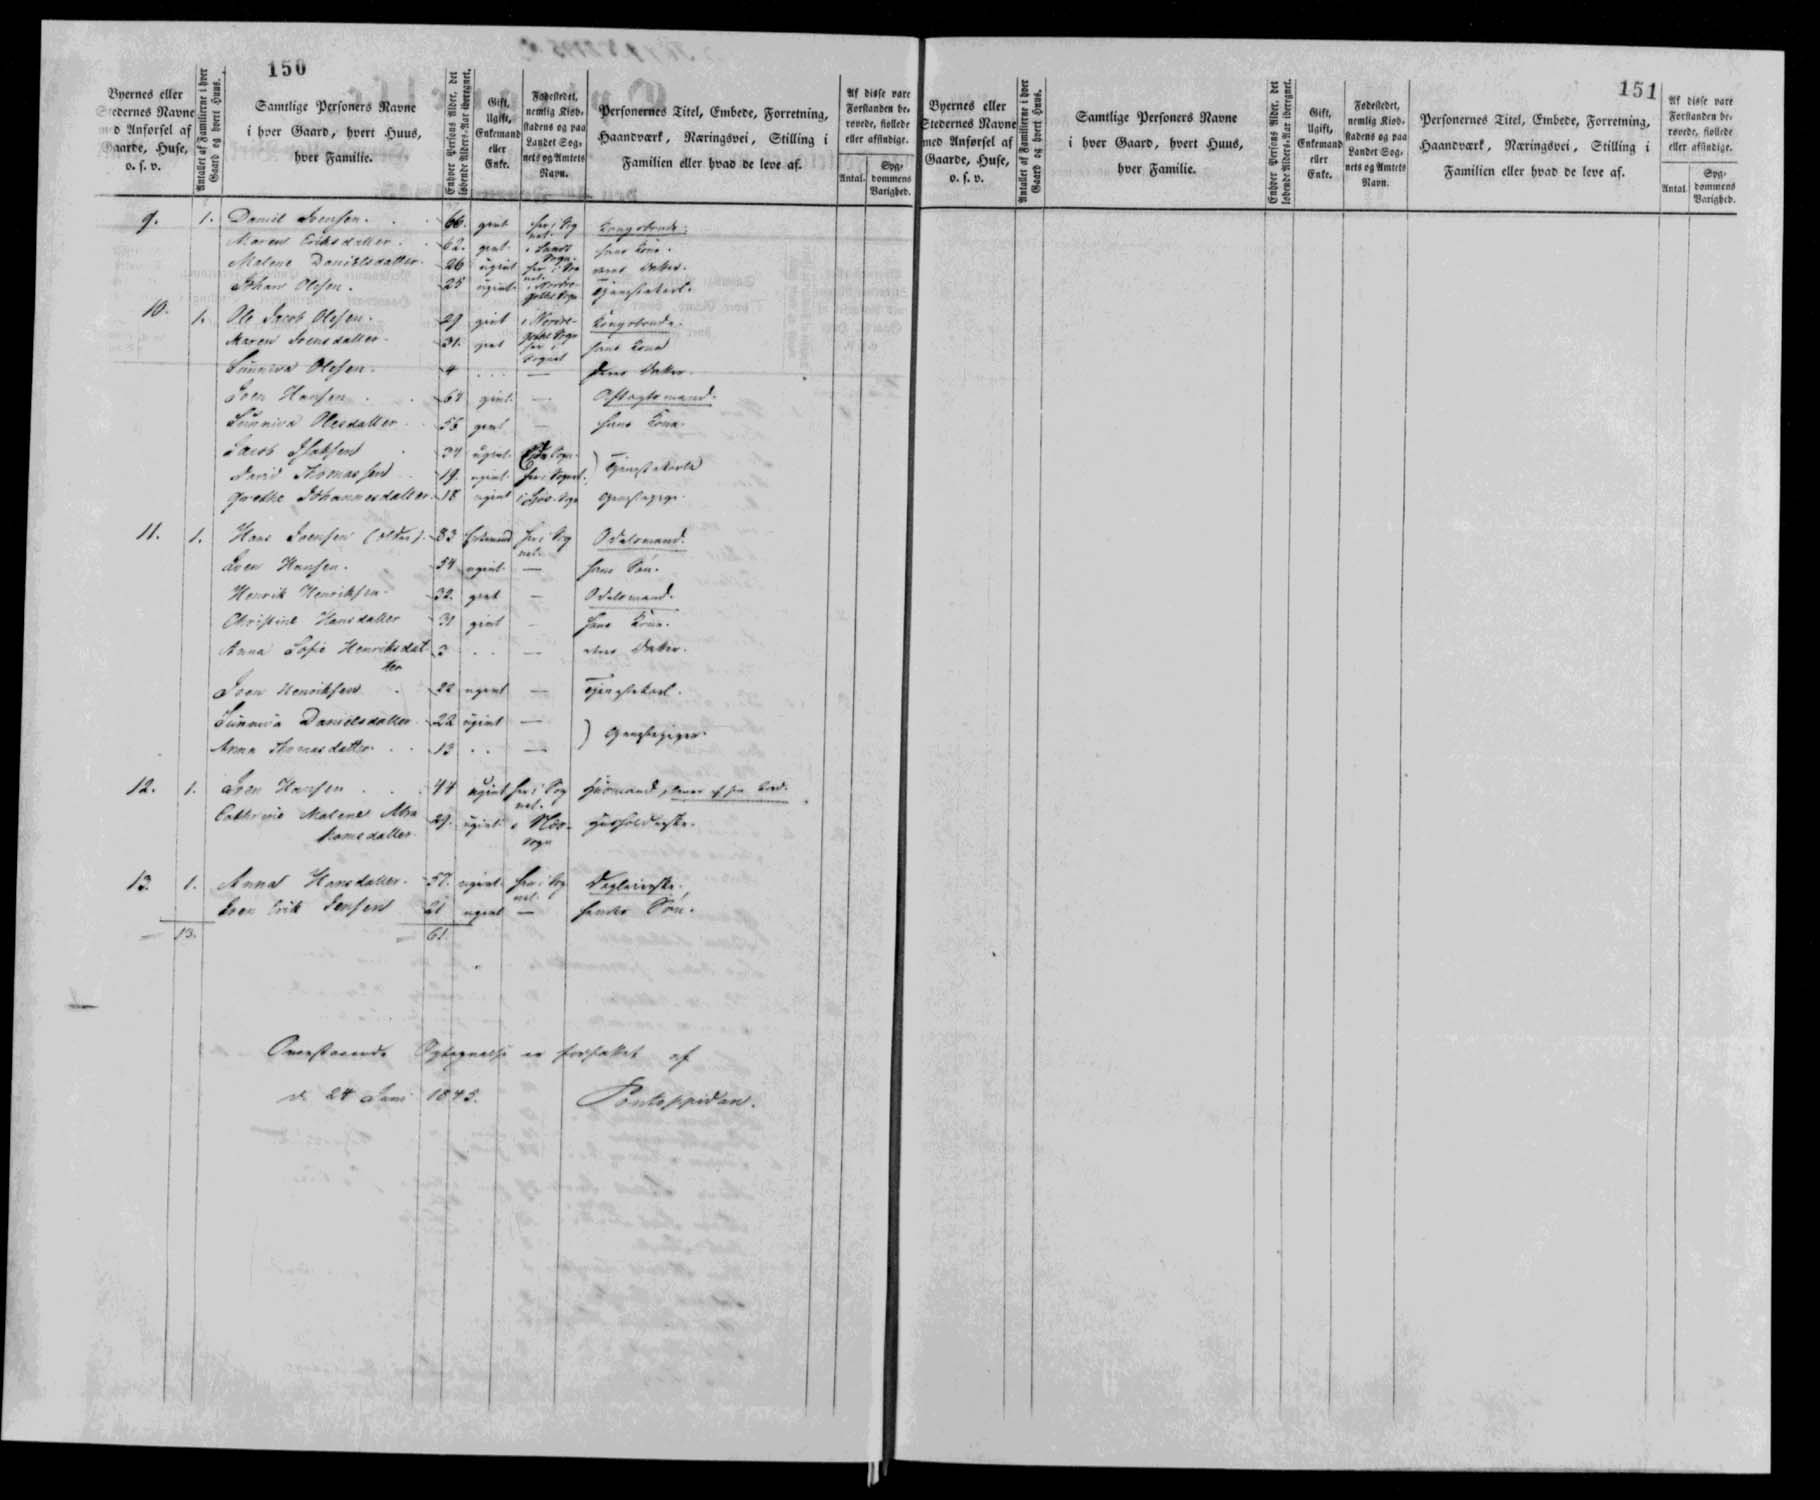 150
Byernes eller Stedernes Navne med Anførsel af Gaarde, Huse, o. s. v.
Antallet af Familierne i hver Gaard og hvert Huus.
Samtlige Personers Navne i hver Gaard, hvert Huus, hver Familie.
Enhver Persons Alder, det løbende Alders-Aar iberegnet.
Gift, Ugift, Enkemand eller Enke.
Fødestedet, nemlig Kiøbstadens og paa Landet Sognets og Amtets Navn.
Personernes Titel, Embede, Forretning, Haandværk, Næringsvei, Stilling i Familien eller hvad de leve af.
Af disse vare Forstanden berøvede, fiollede eller afsindige.
Antal.
Sygdommens Varighed.
9. 1. Daniel Joensen. 66. givt her i Sognet Kongsbonde.
Maren Eriksdatter. 62. givt. i Sands Sogn. hans Kone.
Malene Danielsdatter. 26 ugivt her i Sognet. deres Datter.
Johan Olesen. 25 ugivt. Tjenestekarl.
10. 1. Ole Jacob Olesen. 29 givt Kongsbonde.
Maren Joensdatter. 31. givt her i Sognet hans Kone
Sunniva Olesen. 4 . . . — deres Datter.
Joen Hansen . . givt. — Aftagtsmand.
Sunniva Olesdatter . 55 givt — hans Kone.
Jacob Isaksen . 34 ugivt. ) Tjenestekarle
David Thomassen . 19. ugivt. her i Sognet.
Grethe Johannesdatter. 18 ugivt Tjenestepige.
11. 1. Hans Joensen (ældre). 83 Enkemand her i Sognet. Odelsmand.
Joen Hansen. 54 ugivt. — hans Søn.
Henrik Henriksen. 32. givt — Odelsmand.
Christine Hansdatter 31 givt — hans Kone.
Anna Sofie Henriksdatter 3 . . — deres Datter.
Joen Henriksen . 22 ugivt — Tjenestekarl.
Sunniva Danielsdatter. 22 ugivt — ) Tjenestepiger.
Anna Thomasdatter. . . 13 . . —
12. 1. Joen Hansen . . . 44 ugivt her i Sognet. Huusmand, lever af sin Jord.
Cathrine Malene Abrahamsdatter 29. ugivt. Sogn Huusholderske.
13. 1. Anna Hansdatter. 57. ugivt. her i Sognet. Dagleierske.
Joen Erik Jensen 21 ugivt — hendes Søn.
13. 61.
Ovenstaaende Optegnelse er forfattet af
d. 24 Juni 1845. Pontoppidan.
151
Byernes eller Stedernes Navne med Anførsel af Gaarde, Huse, o. s. v.
Antallet af Familierne i hver Gaard og hvert Huus.
Samtlige Personers Navne i hver Gaard, hvert Huus, hver Familie.
Enhver Persons Alder, det løbende Alders-Aar iberegnet.
Gift, Ugift, Enkemand eller Enke.
Fødestedet, nemlig Kiøbstadens og paa Landet Sognets og Amtets Navn.
Personernes Titel, Embede, Forretning, Haandværk, Næringsvei, Stilling i Familien eller hvad de leve af.
Af disse vare Forstanden berøvede, fiollede eller afsindige.
Antal
Sygdommens Varighed.